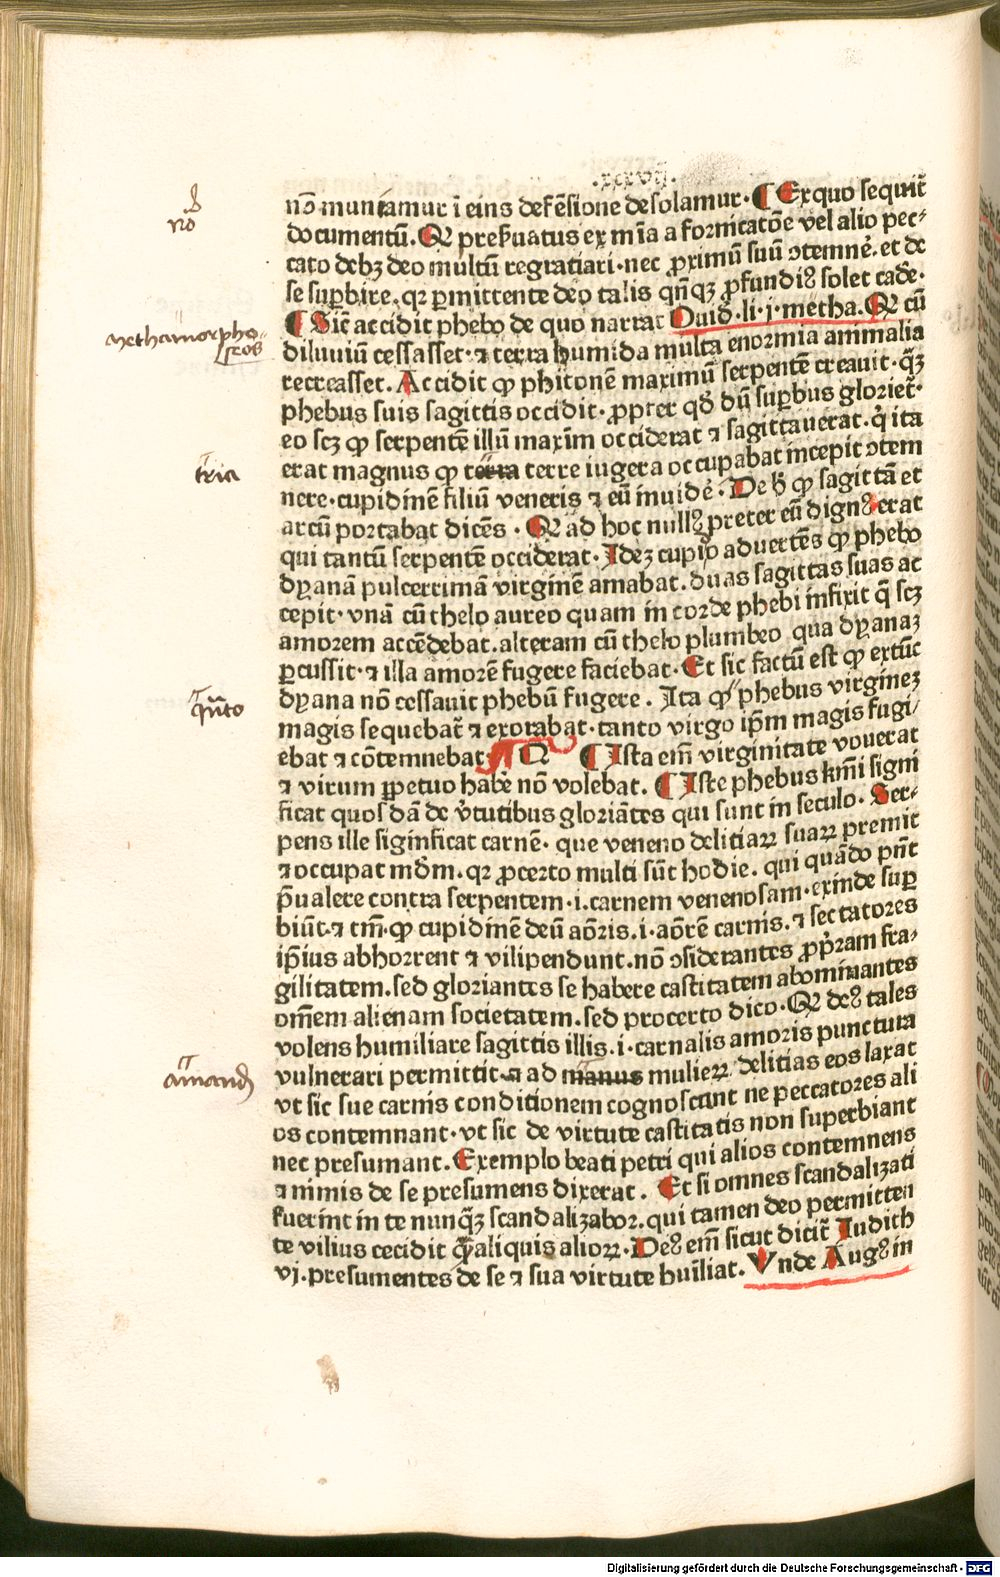 .xcvij.
nō muniamur ī eius defēsione desolamur. ¶ Ex quo sequit᷑
documentū. Qꝛ preſuatus ex mīa a fornicatōe vel alio pec⸗
cato debꝫ deo multū regratiari. nec ꝓximū suū ꝯtemnē. et de
se supbire. qꝛ ꝑmittente deo talis qn̄qꝫ ꝓfundiꝰ solet cadē.
¶ Sic̄ accidit phebo de quo narrat Ouid. li. j. metha. Qꝛ cū
diluuiū cessasset. ⁊ terra humida multa enormia ammalia
recreasset. Accidit ꝙ phitonē maximū serpentē creauit. qꝫ
phebus suis sagittis occidit. ꝓpter qd̄ dū supbus gloriet᷑.
eo scꝫ ꝙ serpentē illū maxim̄ occiderat ⁊ sagittauerat. q̇ ita
erat magnus ꝙ terra terre iugera occupabat incepit ꝯtem
nere. cupidinē filiū veneris ⁊ eū inuidē. De h̄ ꝙ sagittā et
arcū portabat dicēs. Qꝛ ad hoc nullꝰ preter eū dignꝰ erat
qui tantū serpentē occiderat. Ideꝫ cupido aduertēs ꝙ phebo
dyanā pulcerrimā virginē amabat. duas sagittas suas ac
cepit. vnā cū thelo aureo quam in corde phebi infixit q̄ scꝫ
amorem accēdebat. alteram cū thelo plumbeo qua dyanaꝫ
ꝑcussit. ⁊ illa amorē fugere faciebat. Et sic factū est ꝙ extūc
dyana nō cessauit phebū fugere. Ita ꝙ phebus virgineꝫ
magis sequebat᷑ ⁊ exorabat. tanto virgo ip̄m magis fugi/
ebat ⁊ cōtemnebat Qꝛ ¶ Ista em̄ virginitate vouerat
⁊ virum ꝑpetuo habē nō volebat. ¶ Iste phebus km̄i signi
ficat quosdā de v̇tutibus gloriātes qui sunt in seculo. Ser⸗
pens ille siginficat carnē. que veneno delitiaꝝ suaꝝ premit
⁊ occupat mdm̄. qꝛ ꝓcerto multi sūt hodie. qui quādo pn̄t
p̄ualere contra serpentem. i. carnem venenosam. exinde sup
biūt. ⁊ tm̄. ꝙ cupidinē deū aōris. i. aōrē carnis. ⁊ sectatores
ip̄ius abhorrent ⁊ vilipendunt. nō ꝯsiderantes ꝓp̄ram fra⸗
gilitatem. sed gloriantes se habere castitatem abominantes
om̄em alienam societatem. sed procerto dico. Qꝛ deꝰ tales
volens humiliare sagittis illis. i. carnalis amoris punctura
vulnerari permittit. ⁊ ad manus mulieꝝ delitias eos laxat
vt sic sue carnis conditionem cognoscant ne peccatores ali
os contemnant. vt sic de virtute castitatis non superbiant
nec presumant. Exemplo beati petri qui alios contemnens
⁊ nimis de se presumens dixerat. Et si omnes scandalizati
fuerint in te nunqꝫ scandalizabor. qui tamen deo permitten
te vilius cecidit q̄ aliquis alioꝝ. Deꝰ em̄ sicut dicit᷑ Judith
vj. presumentes de se ⁊ sua virtute hum̄iliat. Vnde Augꝰ in
nō
methamorpho⸗
seos
tria
q̄nto
amand
Digitalisierung gefördert durch die Deutsche Forschungsgemeinschaft - DFG